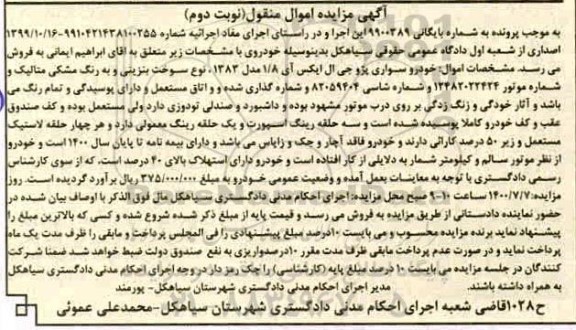 آگهی مزایده اموال منقول(نوبت دوم)
به موجب پرونده به شماره بایگانی ۹۹۰۰۳۸۹ این اجرا و در راستای اجرای مفاد اجرائیه شماره ۹۹۱۰۴۲۱۴۳۸۱۰۰۲۵۵-۱۳۹۹/۱۰/۱۶
اصداری از شعبه اول دادگاه عمومی حقوقی سیاهکل بدینوسیله خودروی با مشخصات زیر متعلق به اقای ابراهیم ایمانی به فروش
می رسد. مشخصات اموال: خودرو سواری پژو جی ال ایکس آی ۱/۸ مدل ۱۳۸۳، نوع سوخت بنزینی و به رنگ مشکی متالیک و
شماره موتور ۱۲۴۸۲۰۲۲۴۲۴ و شماره شاسی ۸۲۰۵۹۴۰۴ و شماره گذاری شده و و اتاق مستعمل و دارای پوسیدگی و تمام رنگ می
باشد و آثار خودگی و زنگ زدگی بر روی درب موتور مشهود بوده و داشبورد و صندلی تودوزی دارد ولی مستعمل بوده و کف صندوق
عقب و کف خودرو کاملا پوسیده شده است و سه حلقه رینگ اسپورت و یک حلقه رینگ معمولی دارد و هر چهار حلقه لاستیک
مستعمل و زیر ۵۰ درصد کارائی دارند و خودرو فاقد آچار و جک و زاپاس می باشد و دارای بیمه نامه تا پایان سال ۱۴۰۰ است و خودرو
از نظر موتور سالم و کیلومتر شمار به دلایلی از کار افتاده است و خودرو دارای استهلاک بالای ۴۰ درصد است، که از سوی کارشناس
رسمی دادگستری با توجه به معاینات بعمل آمده و وضعیت عمومی خودرو به مبلغ ۳۷۵/۰۰۰/۰۰۰ ریال برآورد گردیده است. روز
مزایده: ۱۴۰۰/۷/۷ ساعت ۱۰-۹ صبح محل مزایده: اجرای احکام مدنی دادگستری سیاهکل مال فوق الذکر با اوصاف بیان شده در
حضور نماینده دادستانی از طریق مزایده به فروش می رسد و قیمت پایه از مبلغ ذکر شده شروع شده و کسی که بالاترین مبلغ را
پیشنهاد نماید برنده مزایده محسوب و می بایست ۱۰درصد مبلغ پیشنهادی را فی المجلس پرداخت و مابقی را ظرف مدت یک ماه
پرداخت نماید و در صورت عدم پرداخت مابقی ظرف مدت مقرر ۱۰درصدواریزی به نفع صندوق دولت ضبط خواهد شد ضمنا شرکت
کنندگان در جلسه مزایده می بایست ۱۰ درصد مبلغ پایه (کارشناسی) را چک رمز دار در وجه اجرای احکام مدنی دادگستری سیاهکل
به همراه داشته باشند. مدیر اجرای احکام مدنی دادگستری شهرستان سیاهکل- پورمند
ح۱۰۲۸ قاضی شعبه اجرای احکام مدنی دادگستری شهرستان سیاهکل-محمدعلی عموئی